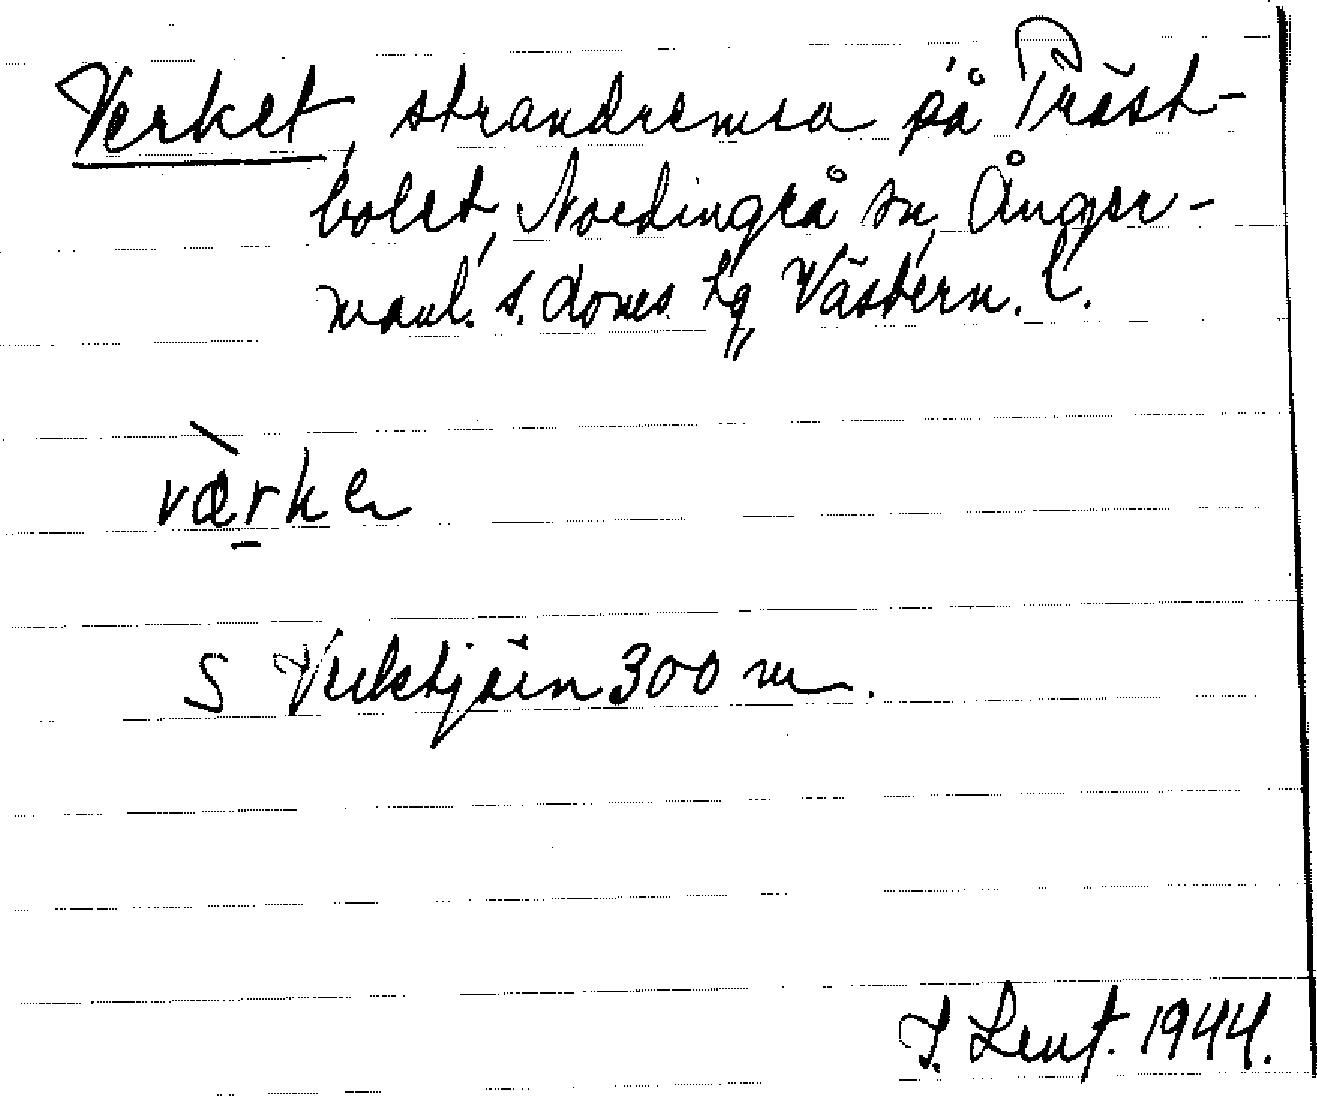 Verket, strandremsa på Präst-
bolet, Nordingrå sn, Ånger-
manl. s. doms. hg, Västern. l.
værke
S Verkstjärn 300 m.
1944.